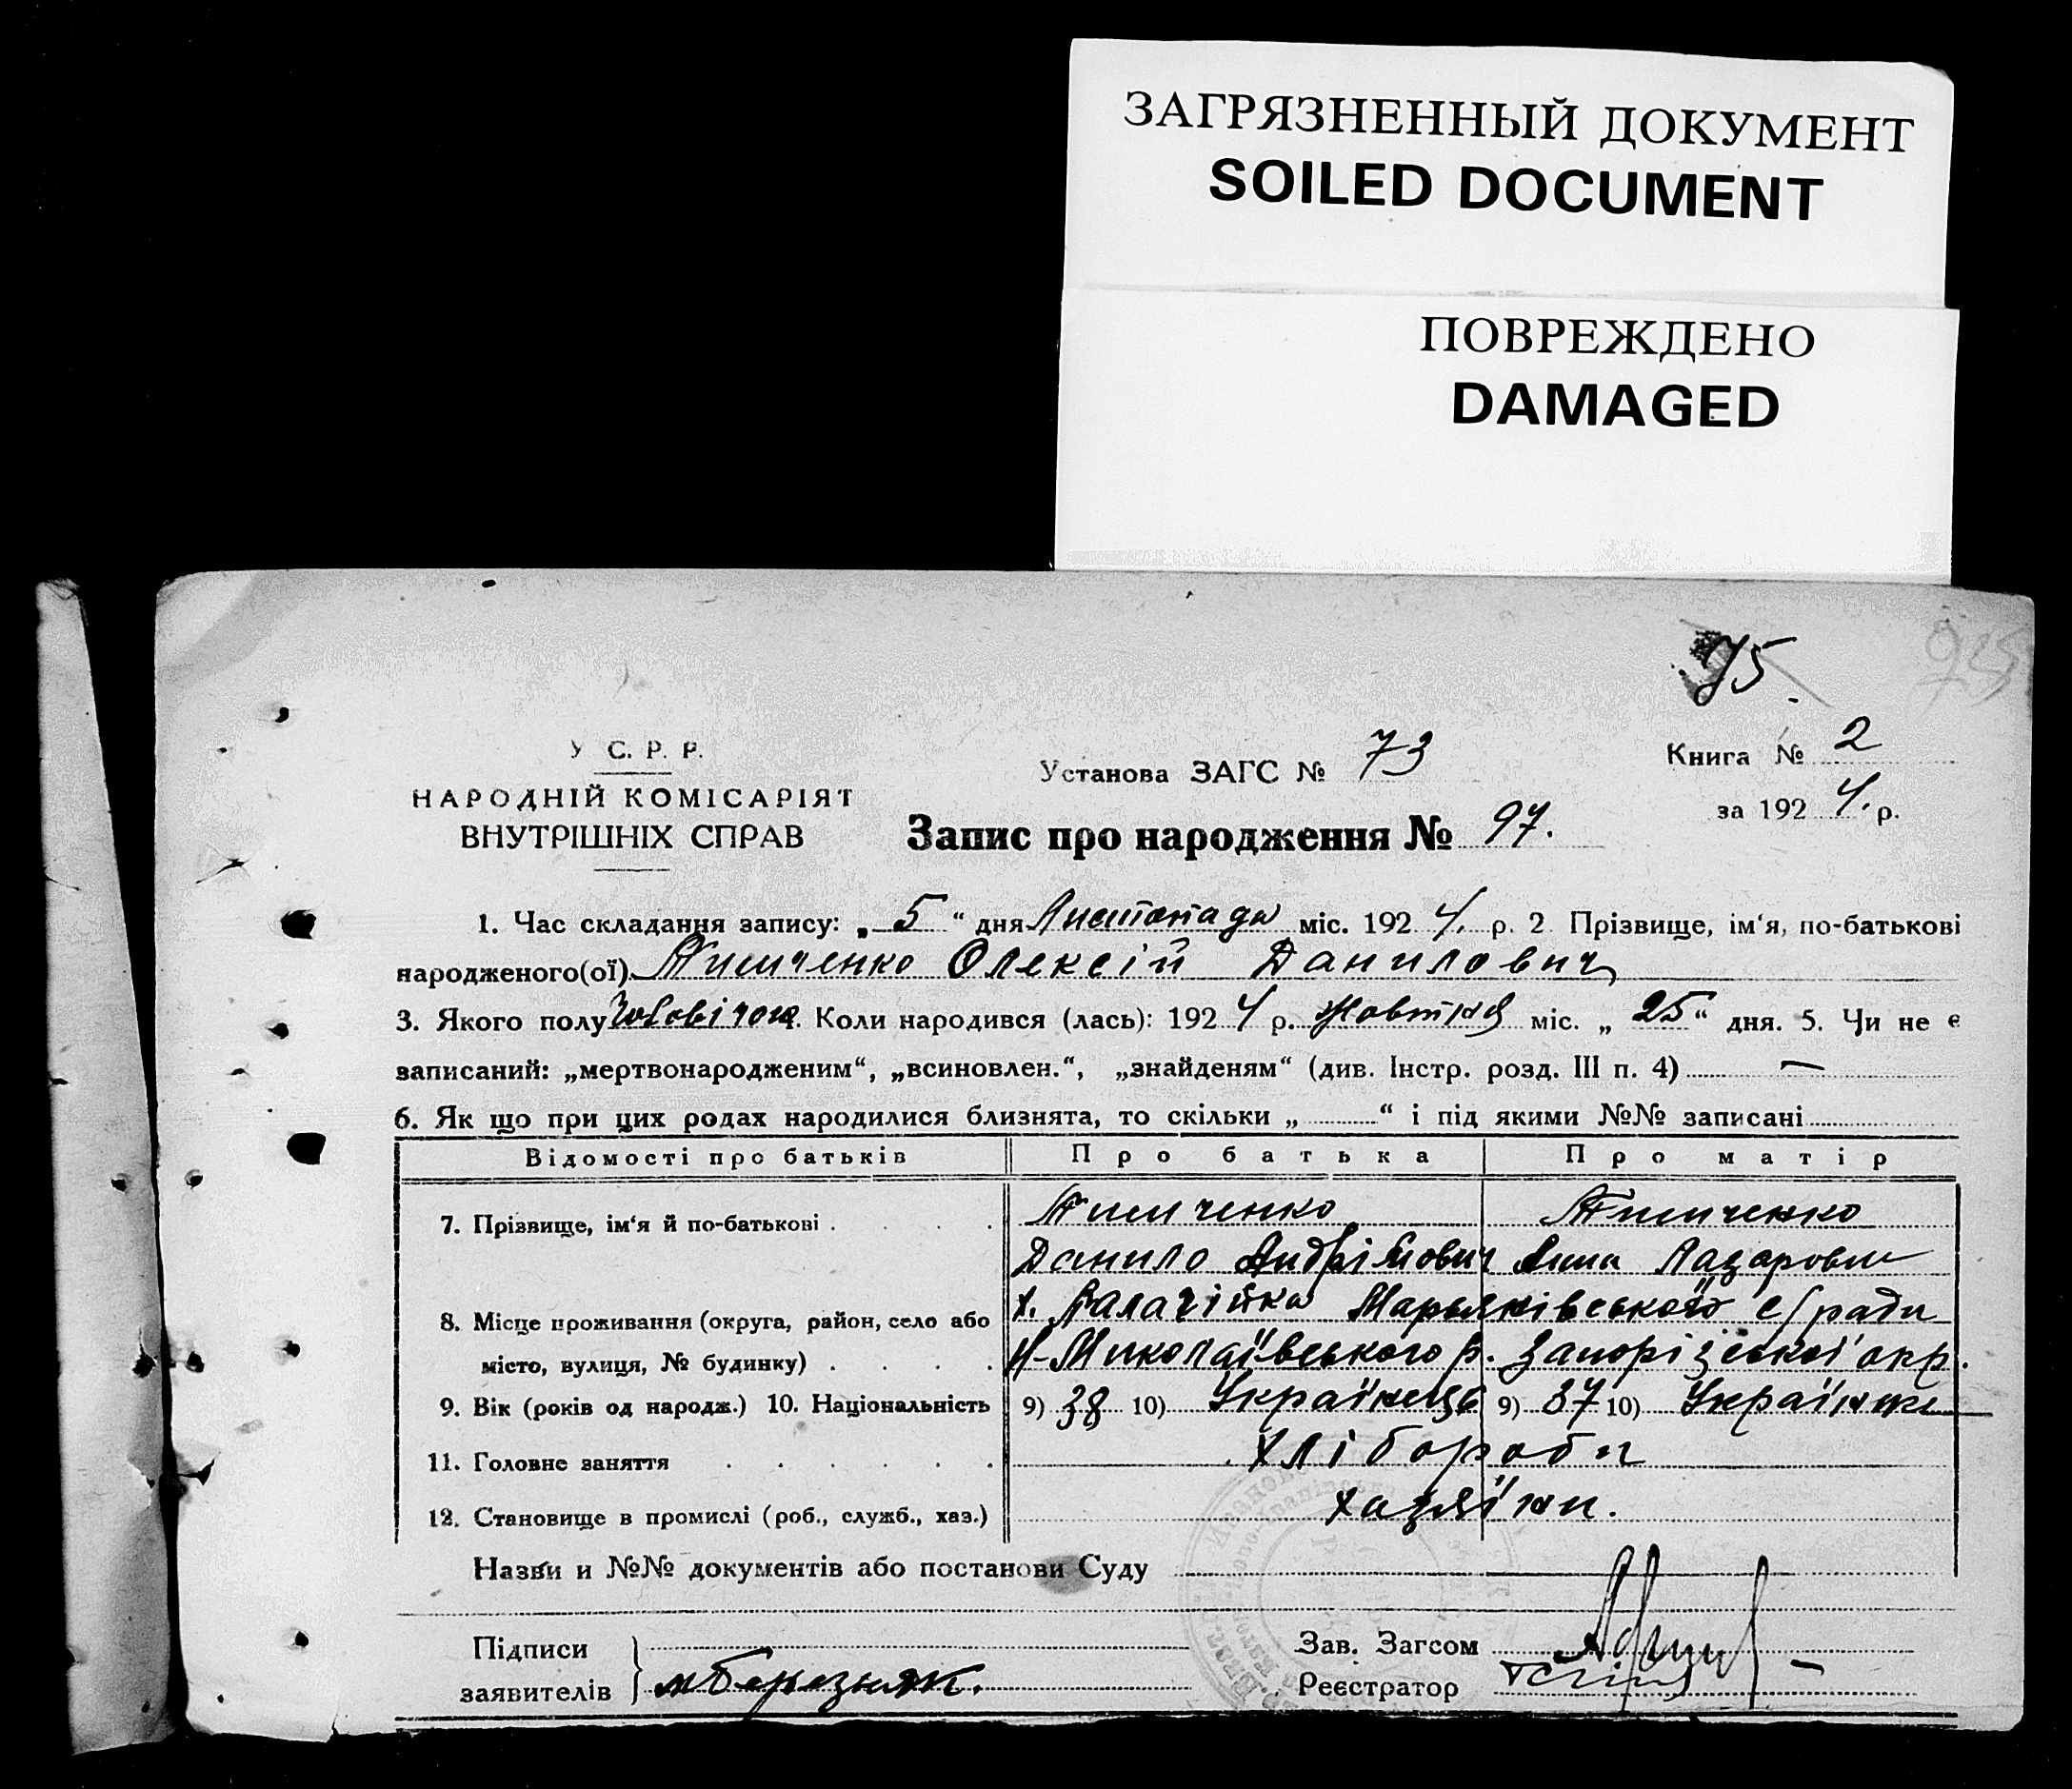 ЗАГРЯЗНЕННЫЙ ДОКУМЕНТ
SOILED DOCUMENT
ПОВРЕЖДЕНО
DAMAGED
95.
У С. Р. Р.
НАРОДНІЙ КОМІСАРІЯТ
ВНУТРІШНІХ СПРАВ
Установа ЗАГС № 73
Книга № 2
за 192 4. р.
Запис про народження № 97.
1. Час складання запису: „ 5 “ дня Листопада міс. 192 4. р. 2. Прізвище, ім‘я, по-батькові
народженого(ої) Тимченко Олексій Данилович
3. Якого полу Коли народився (лась): 192 4 р. Жовтня міс. „ 25 “ дня. 5. Чи не є
записаний: „мертвонародженим“, „всиновлен.“, „знайденям“ (див. Інстр. розд. III п. 4) —
6. Як що при цих родах народилися близнята, то скільки „ “ і під якими №№ записані
Відомості про батьків Про батька Про матір
7. Прізвище, ім‘я й по-батькові Тимченко Тимченко
Данило Андрійович Анна Лазаровна
8. Місце проживання (округа, район, село або х. с/ради
місто, вулиця, № будинку) Н-Миколаївського р. Запорізської окр.
9. Вік (років од народж.) 10. Національність 9) 38 10) Українець 9) 37 10) Українка
11. Головне заняття Хлібороби
12. Становище в промислі (роб., служб., хаз.) хазяїни.
Назви и №№ документів або постанови Суду
Підписи
заявителів Березняк.
Зав. Загсом
Реєстратор